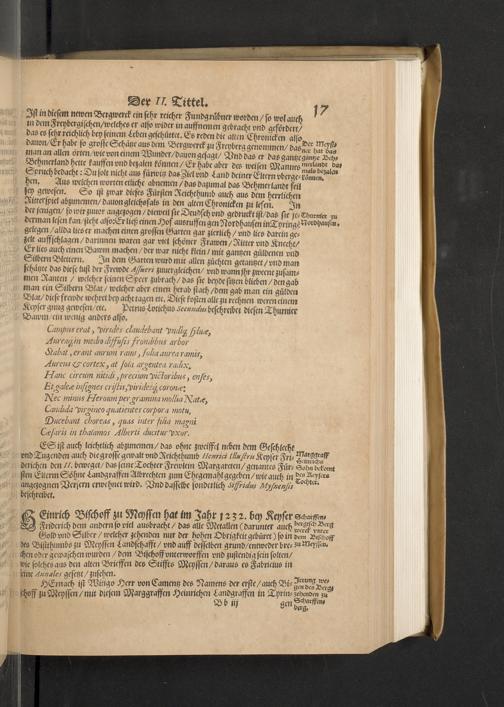 Der II. Tittel.
17
Ist in diesem newen Bergwerck ein sehr reicher Fundgrübner worden / so wol auch
in dem Freybergischen / welches er also wider in auffnemen gebracht und gefördert /
das es sehr reichlich bey seinem Leben geschüttet. Es reden die alten Chronicken also
davon / Er habe so grosse Schätze aus dem Bergwerck zu Freyberg genommen / das
man an allen örten / wie von einem Wunder / davon gesagt / Und das er das gantze
Behmerland hette kauffen und bezalen können / Er habe aber des weisen Manns
Spruch bedacht : Du solt nicht aus fürwitz das Ziel und Land deiner Eltern überge-
hen. Aus welchen worten etliche abnemen / das dazumal das Behmerlands feil
sey gewesen. So ist zwar dieses Fürsten Reichthumb auch aus dem herrlichen
Ritterspiel abzunemen / davon gleichesfals in den alten Chronicken zu lesen. In
der jenigen / so wir zuvor angezogen / dieweil sie Deudsch und gedruckt ist / das sie je-
derman lesen kan / stehet also: Er ließ einen Hof ausruffen gen Nordhausen in Tyringe
gelegen / alda lies er machen einen grossen Garten gar zierlich / und lies darein ge-
zelt auffschlagen / darinnen waren gar viel schöner Frawen / Ritter und Knecht /
Er lies auch einen Bawm machen / der war nicht klein / mit gantzen güldenen und
Silbern Blettern. In dem Garten wurd mit allen züchten getantzet / und man
schätzte das diese lust der Frewde Assueri zuvergleichen / und wann ihr zween zusam-
men Ranten / welcher seinen Speer zubrach / das sie beyde sitzen blieben / den gab
man ein Silbern Blat / welcher aber einen herab stach / dem gab man ein gülden
Blat / diese frewde wehret bey acht tagen etc. Diese kosten alle zu rechnen weren einem
Keyser gnug gewesen / etc. Petrus Lotichius Secundus beschreibet diesen Thurnier
Bawm / ein wenig anders also.
Campus erat, virides claudebant undiq; siluæ,
Aurea q; in medio diffusis frondibus arbor
Stabat, erant aurum rami, folia aurea ramis,
Aureus & cortex, at soia argentea radix.
Hanc circum nitidi, precium victoribus, enses,
Et galeæ insignes cristis, viridesq; coronæ:
Nec minus Heroum per gramina mollia Natæ,
Candida virgineo quatientes corpora motu,
Ducebant choreas, quas inter filia magni
Cæsaris in thalamos Alberti ducitur vxor.
ES ist auch leichtlich abzunemen / das ohne zweiffel neben dem Geschlecht
und Tugenden auch die grosse gewalt und Reichthumb Henrici Illustris Keyser Fri-
derichen den II. bewoget / das seine Tochter Frewlein Margareten / genantes Für-
sten Eltern Söhne Landgraffen Albrechten zum Ehegemahl gegeben / wie auch in
angezogenen Versen erwehnet wird. Und dasselbe sonderlich Sifridus Mysnensis
beschreibet.
HEinrich Bischoff zu Meyssen hat im Jahr 1232. bey Keyser
Friderich dem andern so viel ausbracht / das alle Metallen (darunter auch
Gold und Silber / welcher zehenden nur der hohen Obrigkeit gebüret) so in
des Bisthumbs zu Meyssen Landschafft / und auff desselben grund / entweder bre-
chen oder gewaschen wurden / dem Bischoff unterworffen und zustendig sein solten /
wie solches aus den alten Brieffen des Stiffts Meyssen / daraus es Fabricius in
seine Annales gesetzt / zusehen.
HErnach ist Witigo Herr von Camentz des Namens der erste / auch Bi-
schoff zu Meyssen / mit diesem Marggraffen Heinrichen Landgraffen in Tyrin-
Bb iij
gen
Der Meyss-
ner hat das
gantze Beh-
merlandt da-
mals bezalen
können.
Thurnier zu
Nordhausen.
Marggraff
Heinrichs
Sohn bekomt
des Keysers
Tochter.
Scharffen-
bergisch Berg
werck unter
dem Bischoff
zu Meyssen.
Irrung we-
gen des Berg-
zehenden zu
Scharffen-
berg.